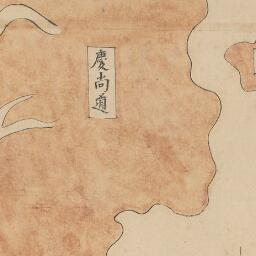 慶尚道